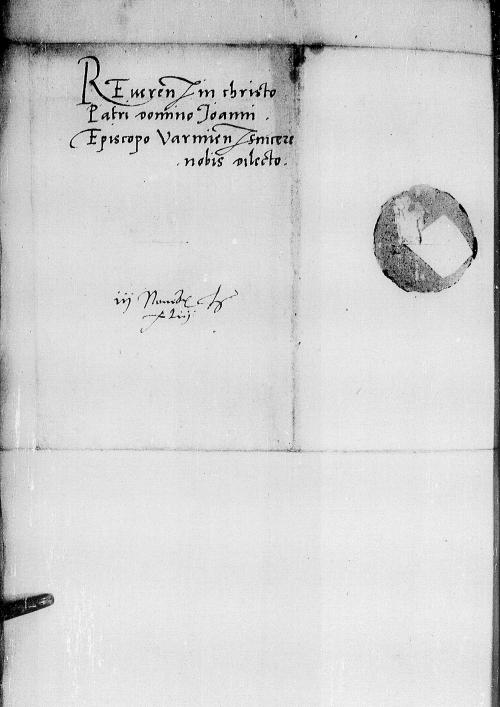 REveren in christo
Patri domino Joanni .
Episcopo Varmien sincere
nobis dilecto .
iij Novembr
xlij